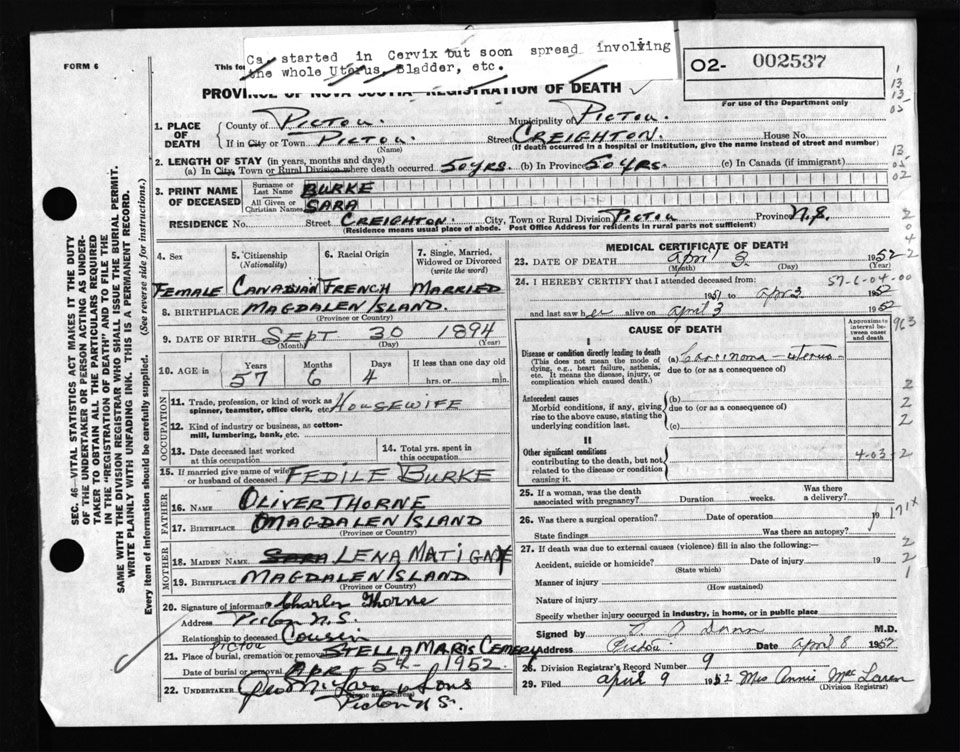 Ca, started in Cervix but soon spread involving
the whole Uterus, Bladder, etc.
FORM 6
This for
O2- 002537
For use of the Department only
PROVINCE OF NOVA SCOTIA—REGISTRATION OF DEATH
1. PLACE OF DEATH
County of Pictou. Municipality of Pictou.
If in City or Town Pictou. Street Creighton. House No.
(Name) (If death occurred in a hospital or institution, give the name instead of street and number)
2. LENGTH OF STAY (in years, months and days)
(a) In City, Town or Rural Division where death occurred. 50 yrs. (b) In Province 50 yrs. (c) In Canada (if immigrant)
3. PRINT NAME OF DECEASED
Surname or Last Name BURKE
All Given or Christian Names SARA
RESIDENCE No. Street CREIGHTON. City, Town or Rural Division Pictou Province N.S.
(Residence means usual place of abode. Post Office Address for residents in rural parts not sufficient)
4. Sex Female
5. Citizenship (Nationality) Canadian
6. Racial Origin French
7. Single, Married, Widowed or Divorced (write the word) Married
8. BIRTHPLACE Magdalen Island.
(Province or Country)
9. DATE OF BIRTH Sept 30 1894
(Month) (Day) (Year)
10. AGE in Years 57 Months 6 Days 4 If less than one day old hrs. or min.
OCCUPATION
11. Trade, profession, or kind of work as spinner, teamster, office clerk, etc. Housewife
12. Kind of industry or business, as cotton-mill, lumbering, bank, etc.
13. Date deceased last worked at this occupation
14. Total yrs. spent in this occupation
15. If married give name of wife or husband of deceased Fedile Burke
FATHER
16. NAME Oliver Thorne
17. BIRTHPLACE Magdalen Island
MOTHER
18. MAIDEN NAME Lena
19. BIRTHPLACE Magdalen Island
(Province or Country)
20. Signature of informant Charles Thorne
Address Pictou N.S.
Relationship to deceased Cousin
Pictou
21. Place of burial, cremation or removal Stella Maris Cemery
Date of burial or removal Apr 5th 1952.
22. UNDERTAKER & Sons
(Name and address)
Pictou N.S.
MEDICAL CERTIFICATE OF DEATH
23. DATE OF DEATH April 3 1952
(Month) (Day) (Year)
24. I HEREBY CERTIFY that I attended deceased from 57-6-04-00
1951 to Apr 3 1952
and last saw her alive on April 3 1952
CAUSE OF DEATH
Approximate interval between onset and death
963
I
Disease or condition directly leading to death (a) Carcinoma - uterus
(This does not mean the mode of dying, e.g., heart failure, asthenia, etc. It means the disease, injury, or complication which caused death.)
due to (or as a consequence of)
Antecedent causes (b)
Morbid conditions, if any, giving rise to the above cause, stating the underlying condition last.
due to (or as a consequence of)
(c)
II
Other significant conditions
contributing to the death, but not related to the disease or condition causing it.
4-03-2
25. If a woman, was the death associated with pregnancy? Duration weeks. Was there a delivery?
26. Was there a surgical operation? Date of operation 19
171x
State findings Was there an autopsy?
27. If death was due to external causes (violence) fill in also the following:—
Accident, suicide or homicide? Date of injury 19
(State which)
Manner of injury
(How sustained)
Nature of injury
Specify whether injury occurred in industry, in home, or in public place
Signed by M.D.
Address Pictou Date April 8 1952
28. Division Registrar's Record Number 9
29. Filed April 9 1952 Mrs Annie MacLaren
(Division Registrar)
SEC. 46—VITAL STATISTICS ACT MAKES IT THE DUTY
OF THE UNDERTAKER OR PERSON ACTING AS UNDER-
TAKER TO OBTAIN ALL THE PARTICULARS REQUIRED
IN THE "REGISTRATION OF DEATH" AND TO FILE THE
SAME WITH THE DIVISION REGISTRAR WHO SHALL ISSUE THE BURIAL PERMIT.
WRITE PLAINLY WITH UNFADING INK. THIS IS A PERMANENT RECORD.
Every item of information should be carefully supplied. (See reverse side for instructions.)